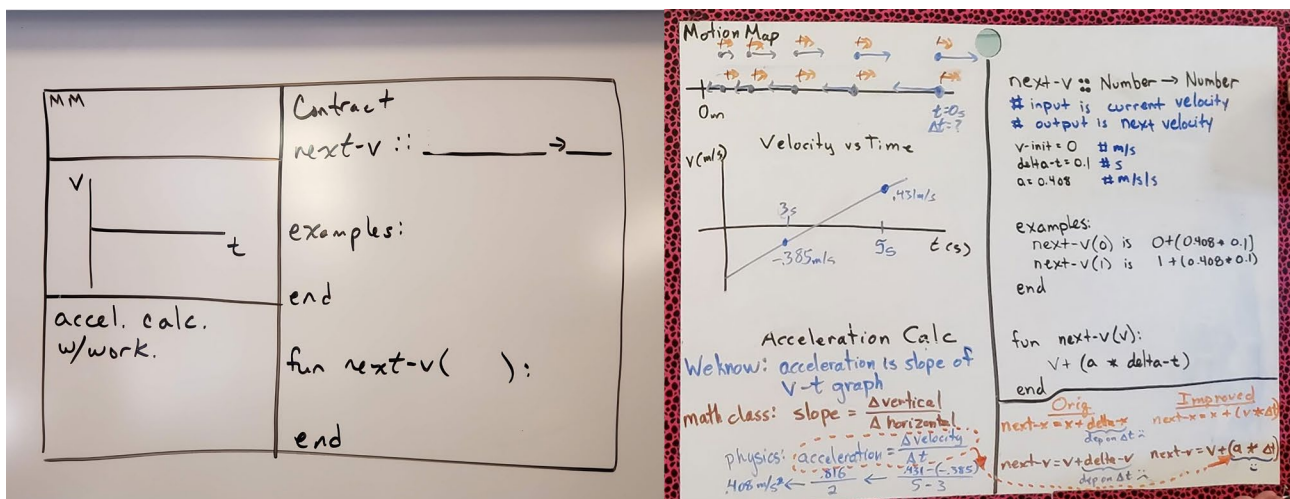 MM
V
t
accel. calc.
w/work.
Contract
next-v :: ________ → ____
examples:
end
fun next-v( ):
end
Motion Map
0m
t=0s
Δt=?
Velocity vs Time
V(m/s)
3s
.431m/s
-.385m/s
5s
t(s)
Acceleration Calc
We know: acceleration is slope of
v-t graph
math class: slope = Δvertical / Δhorizontal
physics: acceleration = Δvelocity / Δt
.408 m/s² ← .816 / 2 ← .431-(-.385) / 5-3
next-v :: Number → Number
# input is current velocity
# output is next velocity
v-init = 0 # m/s
delta-t = 0.1 # s
a = 0.408 # m/s/s
examples:
next-v(0) is 0+(0.408*0.1)
next-v(1) is 1+(0.408*0.1)
end
fun next-v(v):
v+ (a * delta-t)
end
Orig Improved
next-x = x + delta-x next-x = x + (v*Δt)
dep on Δt
next-v = v + delta-v next-v = v+(a * Δt)
dep on Δt